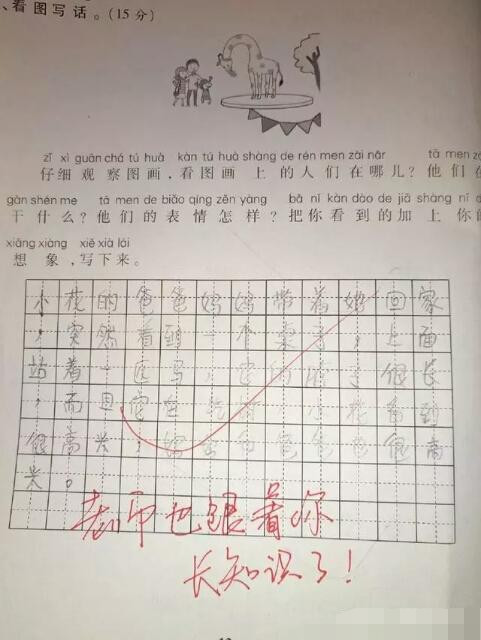 、看图写话。(15分)
zǐ xì guān chá tú huà kàn tú huà shàng de rén men zài nǎr tā men z
仔细观察图画，看图画上的人们在哪儿？他们在
gàn shén me tā men de biǎo qíng zěn yàng bǎ nǐ kàn dào de jiā shàng nǐ d
干什么？他们的表情怎样？把你看到的加上你的
xiǎng xiàng xiě xià lái
想象，写下来。
小花的爸爸妈妈带着她回家
，突然看到一个桌子，上面
站着一匹马，它的脖子很长
，而且它在吃 小花看到
很高兴，她 爸爸也很高
兴。
老师也跟着你
长知识了！